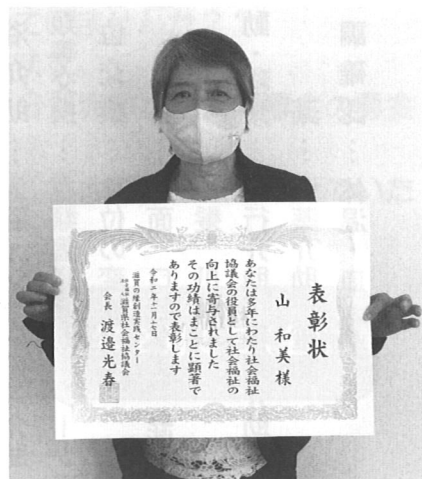 表彰状
山 和美 様
あなたは多年にわたり社会福祉
協議会の役員として社会福祉の
向上に寄与されました
その功績はまことに顕著で
ありますので表彰します
令和二年十一月十七日
滋賀の縁創造実践センター
滋賀県社会福祉協議会
会長 渡邉光春